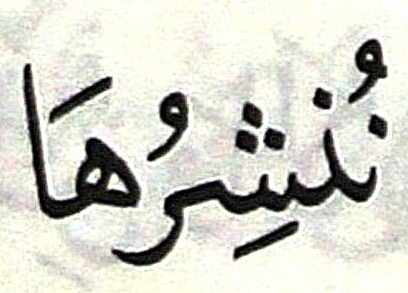 نُنشِرُهَا